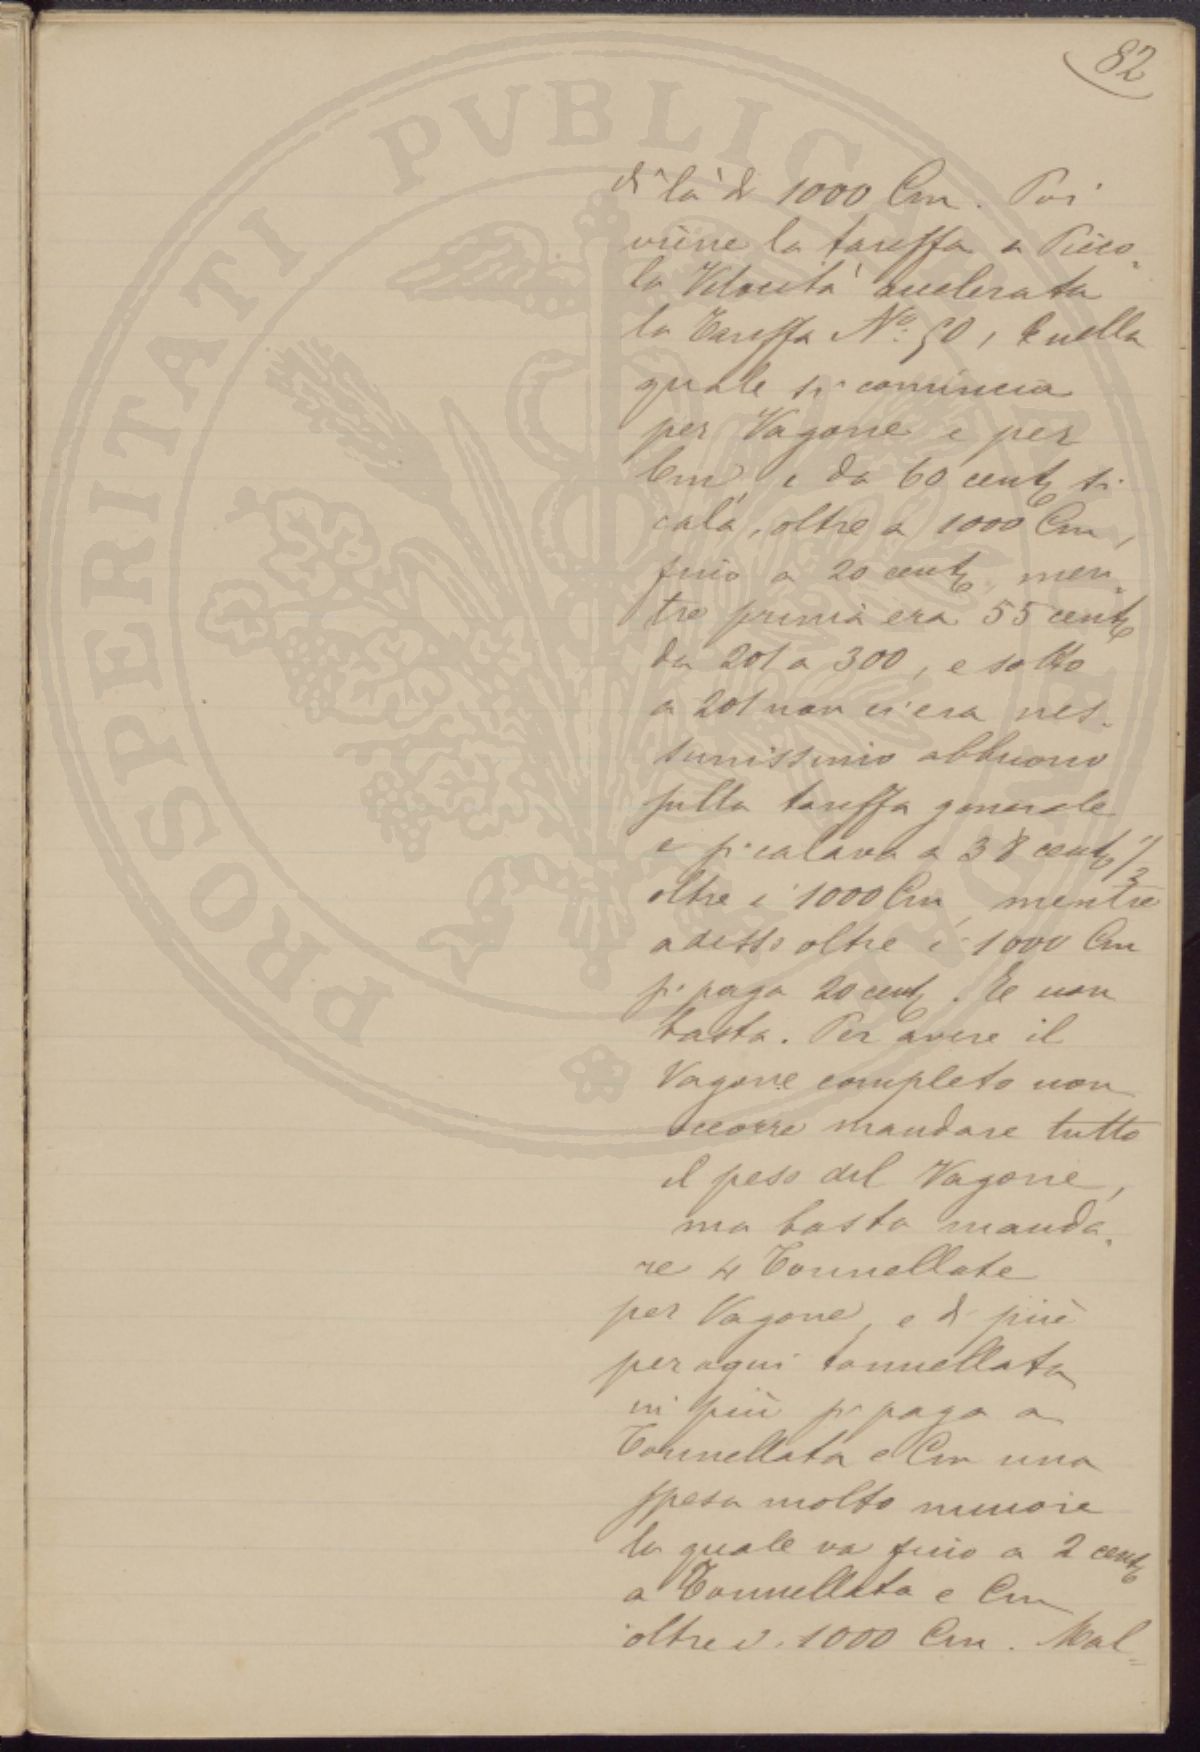 82
di là di 1000 Cm. Poi
viene la tariffa a Picco-
la Velocità accelerata
la Tariffa No. 50, nella
quale si comincia
per Vagone e per
Cm, e da 60 cent si
cala, oltre a 1000 Cm,
fino a 20 cent, men-
tre prima era 55 cent
da 201 a 300, e sotto
a 201 non vi era nes-
sunissimo abbuono
sulla tariffa generale
e si calava a 38 cent 1/2
oltre i 1000 Cm, mentre
adesso oltre i 1000 Cm
si paga 20 cent. E non
basta. Per avere il
Vagone completo non
occorre mandare tutto
il peso del Vagone,
ma basta manda-
re 4 Tonnellate
per Vagone, e di più
per ogni tonnellata
in più si paga a
Tonnellata e Cm una
spesa molto minore
la quale va fino a 2 cent
a Tonnellata e Cm
oltre i 1000 Cm. Mal=
PROSPERITATI PUBLICAE